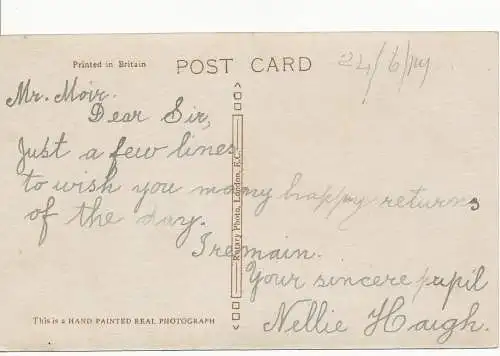 Printed in Britain
POST CARD
24/6/
Mr. Moir.
Dear Sir,
Just a few lines
to wish you many happy returns
of the day.
I remain.
Your sincere pupil
Nellie Haigh.
Rotary Photo, London, E.C.
This is a HAND PAINTED REAL PHOTOGRAPH